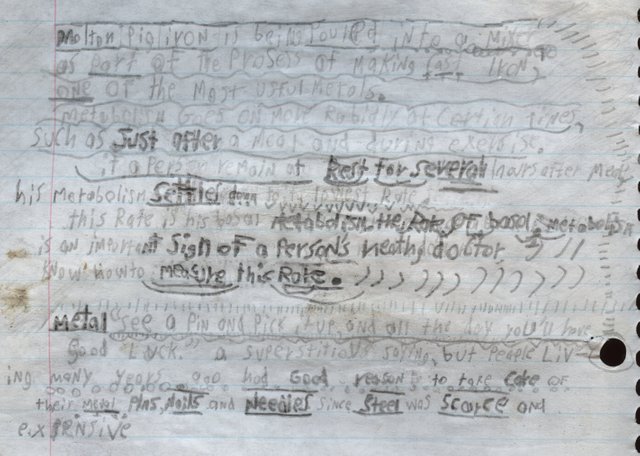 Molton Pig Iron is being Poured into a Mixer
as part of the Prosess of Making Cast Iron,
one of the Most usful Metals.
Metabolism Goes on More Rapidly at Certion Times,
such as Just after a Meal and during exersise.
if a Person remain at Rest for several hours after Meal
his Metabolism Settles down to
this Rate is his basal metabolism. the Rate of basal metabolism
is an important Sign of a Person's heath, doctor
know how to measure this Rate.
Metal "see a Pin and Pick it up, and all the day you'll have
Good Luck." a superstitious saying, but People Liv-
ing many years ago had Good reason to take Care of
their Metal Pins, Nails and Needles since Steel was Scarce and
expensive